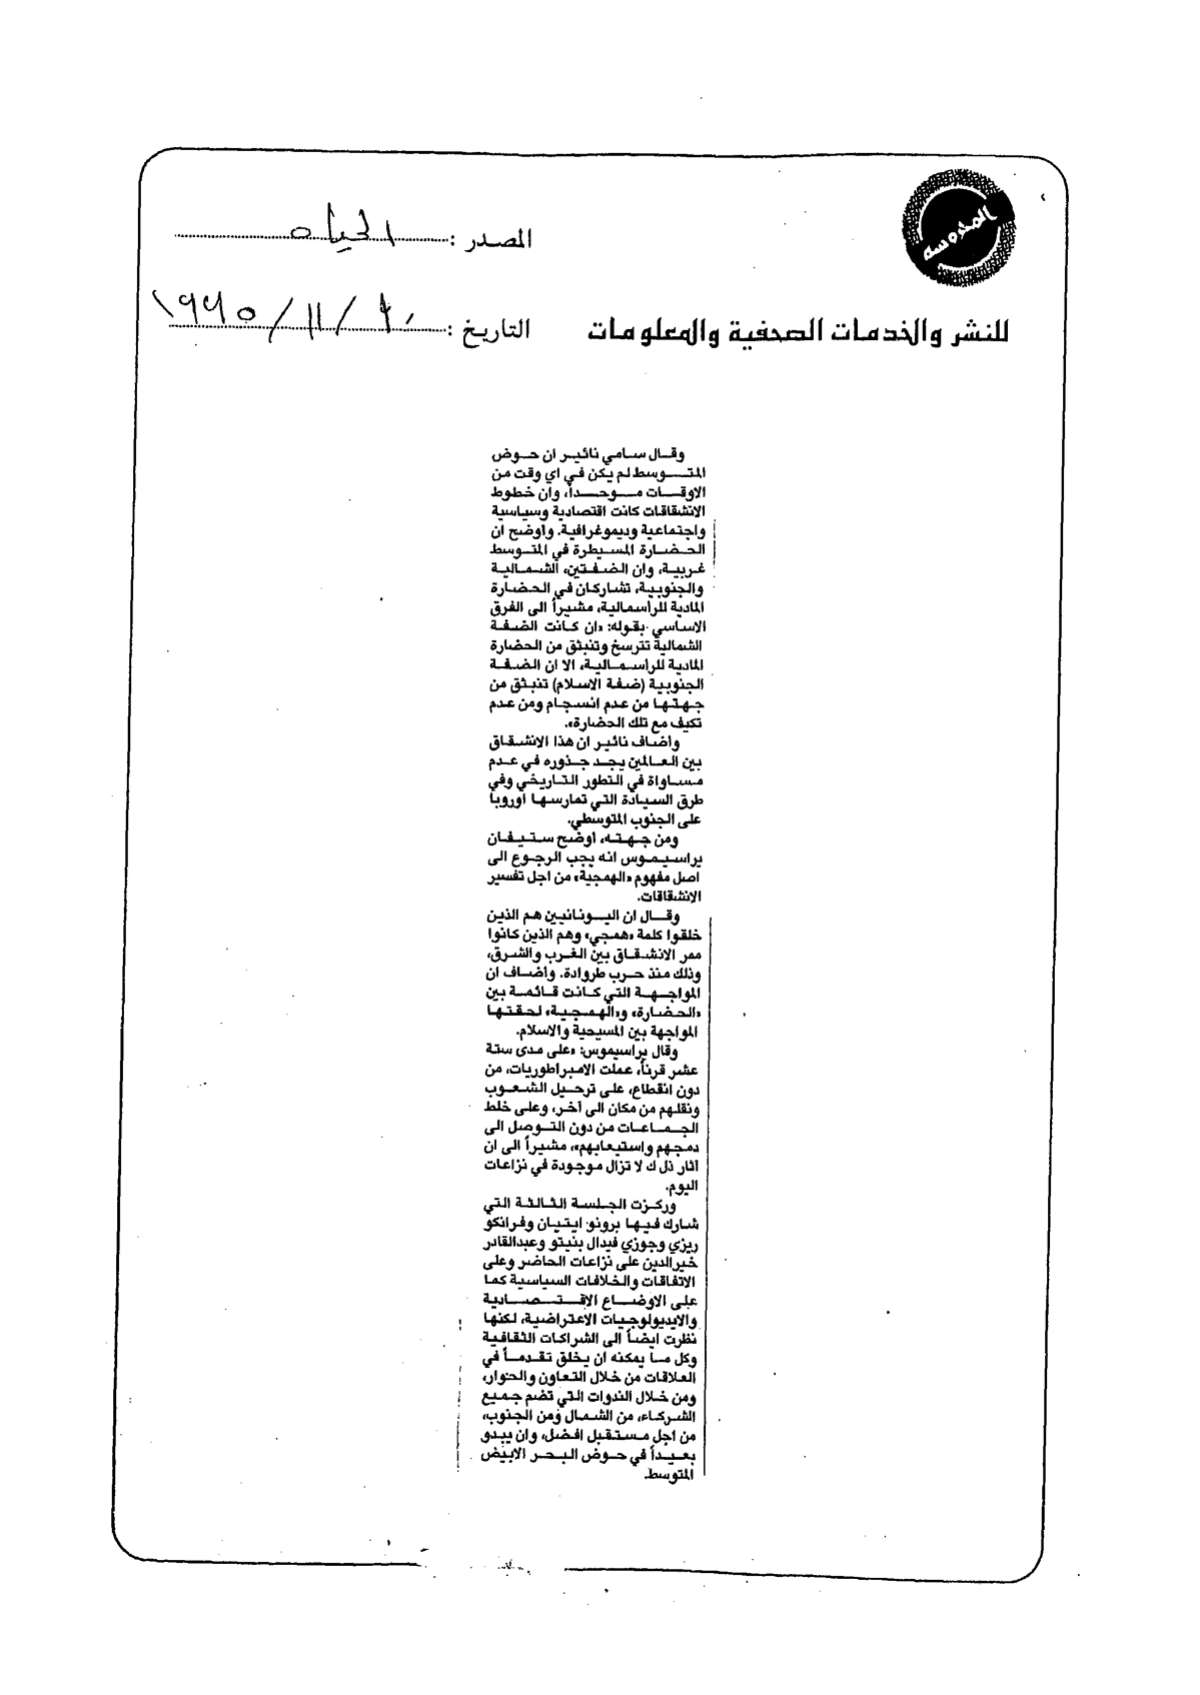 المحروسه
المصدر : الحياه
للنشر والخدمات الصحفية والمعلومات
التاريخ : ٢٠ / ١١ / ١٩٩٥
وقال سامي نائير ان حوض
المتوسط لم يكن في اي وقت من
الاوقات موحداً، وان خطوط
الانشقاقات كانت اقتصادية وسياسية
واجتماعية وديموغرافية. واوضح ان
الحضارة المسيطرة في المتوسط
غربية، وان الضفتين، الشمالية
والجنوبية، تشاركان في الحضارة
المادية للراسمالية، مشيراً الى الفرق
الاساسي بقوله: «ان كانت الضفة
الشمالية تترسخ وتنبثق من الحضارة
المادية للراسمالية، الا ان الضفة
الجنوبية (ضفة الاسلام) تنبثق من
جهتها من عدم انسجام ومن عدم
تكيف مع تلك الحضارة».
واضاف نائير ان هذا الانشقاق
بين العالمين يجد جذوره في عدم
مساواة في التطور التاريخي وفي
طرق السيادة التي تمارسها اوروبا
على الجنوب المتوسطي.
ومن جهته، اوضح ستيفان
يراسيموس انه يجب الرجوع الى
اصل مفهوم «الهمجية» من اجل تفسير
الانشقاقات.
وقال ان اليونانيين هم الذين
خلقوا كلمة «همجي» وهم الذين كانوا
ممر الانشقاق بين الغرب والشرق،
وذلك منذ حرب طروادة. واضاف ان
المواجهة التي كانت قائمة بين
«الحضارة» و«الهمجية» لحقتها
المواجهة بين المسيحية والاسلام.
وقال يراسيموس: «على مدى ستة
عشر قرناً، عملت الامبراطوريات، من
دون انقطاع، على ترحيل الشعوب
ونقلهم من مكان الى آخر، وعلى خلط
الجماعات من دون التوصل الى
دمجهم واستيعابهم»، مشيراً الى ان
آثار ذل ك لا تزال موجودة في نزاعات
اليوم.
وركزت الجلسة الثالثة التي
شارك فيها برونو ايتيان وفرانكو
ريزي وجوزي فيدال بنيتو وعبدالقادر
خيرالدين على نزاعات الحاضر وعلى
الاتفاقات والخلافات السياسية كما
على الاوضاع الاقتصادية
والايديولوجيات الاعتراضية، لكنها
نظرت ايضاً الى الشراكات الثقافية
وكل ما يمكنه ان يخلق تقدماً في
العلاقات من خلال التعاون والحوار،
ومن خلال الندوات التي تضم جميع
الشركاء، من الشمال ومن الجنوب،
من اجل مستقبل افضل، وان يبدو
بعيداً في حوض البحر الابيض
المتوسط.